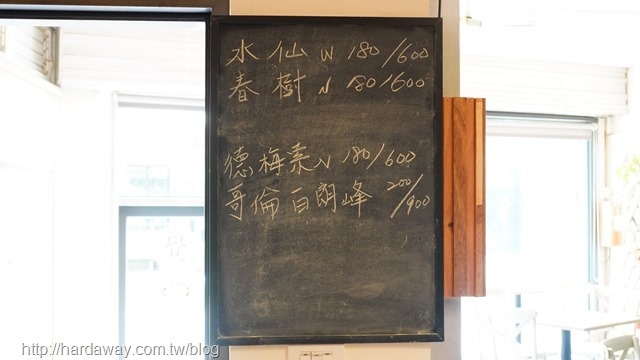 水仙 W 180/600
春樹 N 180/600
德梅素 N 180/600
哥倫百朗峰 200/900
http://hardaway.com.tw/blog